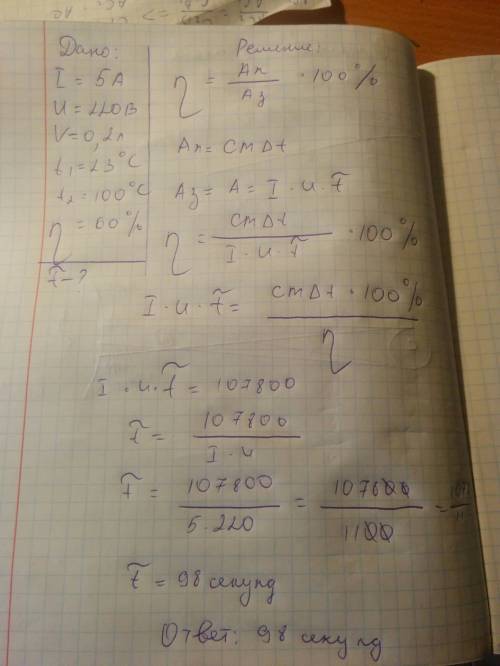 Дано:
I = 5А
U = 220В
V = 0,2л
t₁ = 23°С
t₂ = 100°С
η = 60%
t̃ - ?
Решение:
η = Aп / Aз · 100%
Aп = cmΔt
Aз = A = I · U · t̃
η = cmΔt / I · U · t̃ · 100%
I · U · t̃ = cmΔt · 100% / η
I · U · t̃ = 107800
t̃ = 107800 / I · U
t̃ = 107800 / 5 · 220 = 107800 / 1100 =
t̃ = 98 секунд
Ответ: 98 секунд